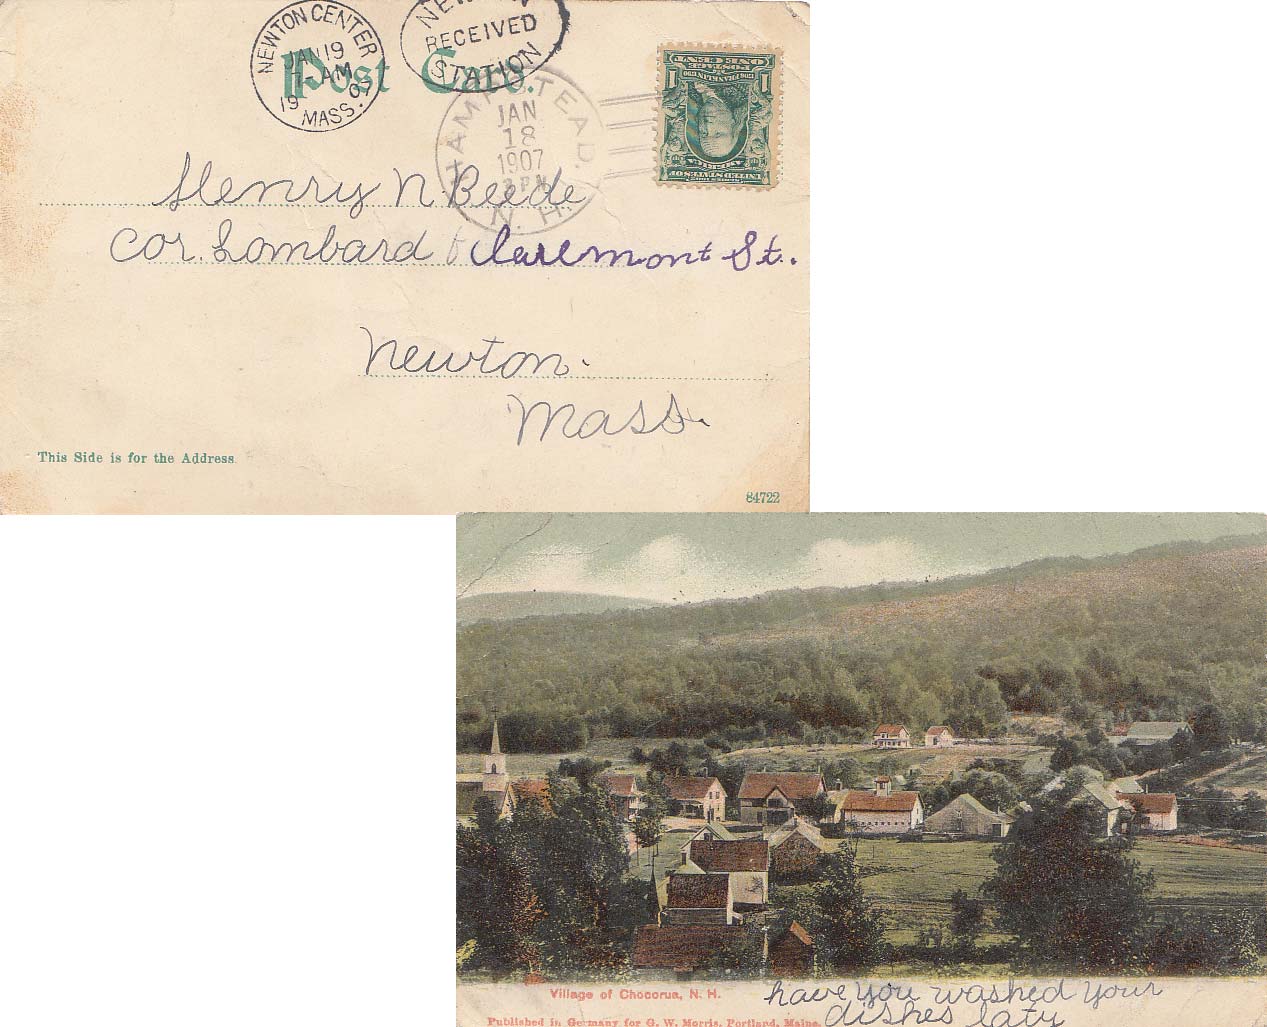 NEWTON CENTER
JAN 19
7-AM
19 07
MASS.
RECEIVED
STATION
Post Card.
HAMPSTEAD.
JAN
18
1907
3 PM
N. H.
ONE CENT
1 1
Henry N. Beede
Cor. Lombard & Claremont St.
Newton.
Mass.
This Side is for the Address.
84722
Village of Chocorua, N. H.
have you washed your
dishes laty
Published in Germany for G. W. Morris, Portland, Maine.